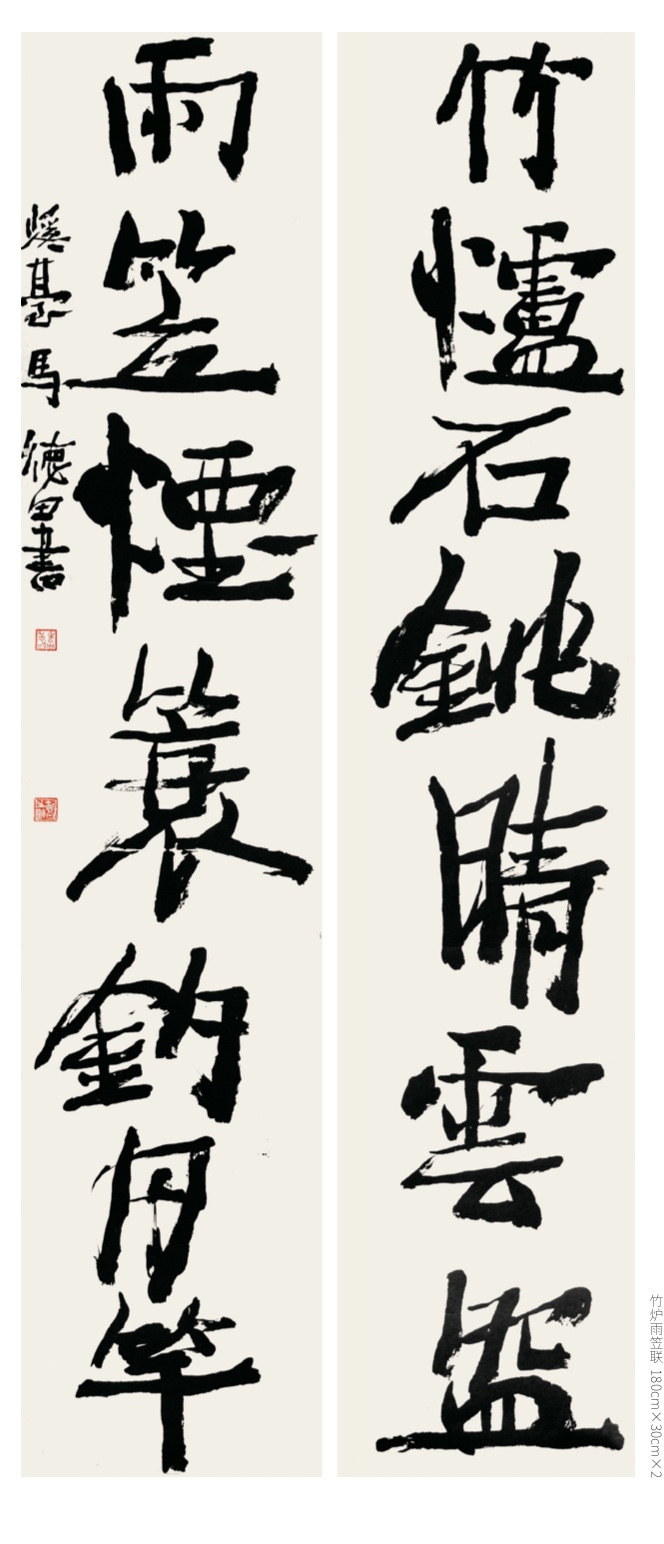 竹爐石銚晴雲盌
雨笠煙簑釣月竿
馬德田書
竹炉雨笠联 180cm×30cm×2